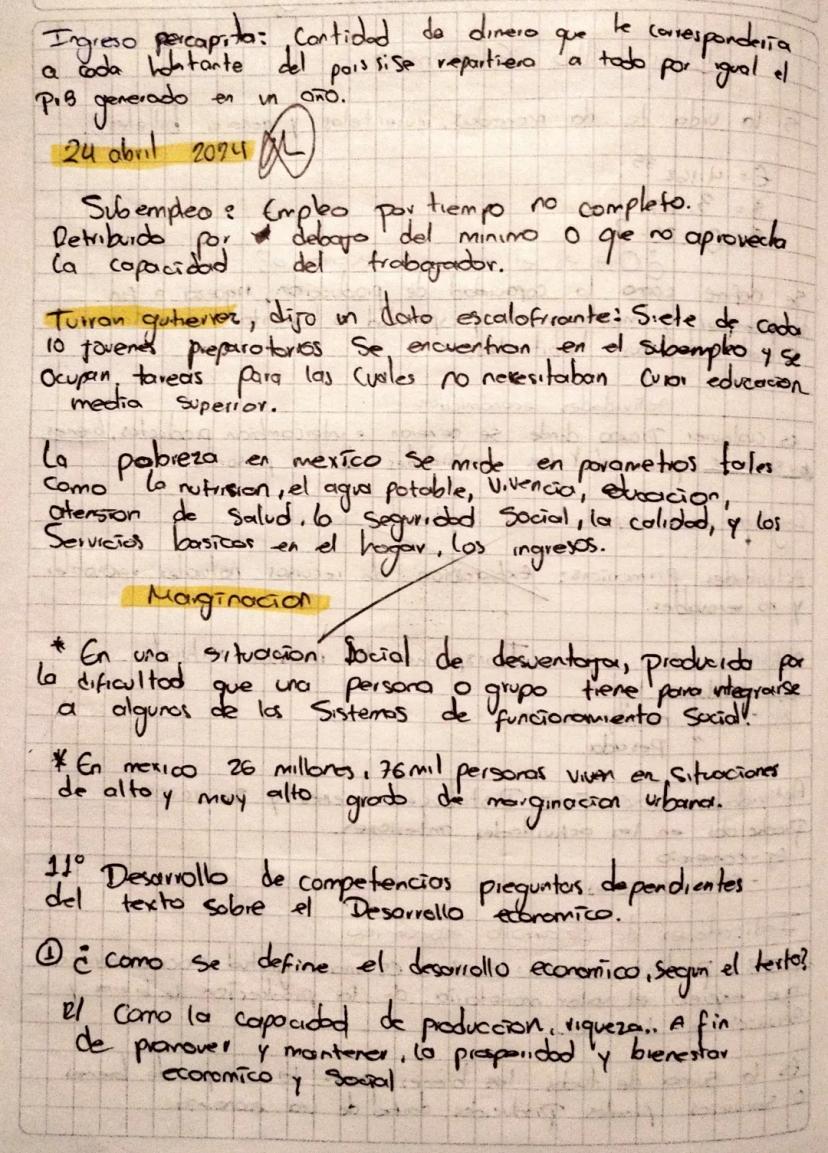 Ingreso percapita: Cantidad de dinero que le corresponderia
a cada habitante del pais si se repartiera a todo por igual el
P.I.B generado en un año.
24 abril 2024
Subempleo: Empleo por tiempo no completo.
Retribuido por debajo del minimo o que no aprovecha
la capacidad del trabajador.
Tuiran gutierrez, dijo un dato escalofriante: Siete de cada
10 jovenes preparatorios se encuentran en el subempleo y se
ocupan, tareas para las cuales no necesitaban cursar educacion
media superior.
La pobreza en mexico se mide en parametros tales
como la nutrision, el agua potable, vivencia, educacion,
atension de salud, la seguridad social, la calidad, y los
Servicios basicos en el hogar, los ingresos.
Marginacion
* En una situacion Social de desventaja, producida por
la dificultad que una persona o grupo tiene para integrarse
a algunos de los Sistemas de funcionamiento Social.
* En mexico 26 millones, 76 mil personas viven en Situaciones
de alto y muy alto grado de marginacion urbana.
11° Desarrollo de competencias preguntas dependientes
del texto sobre el Desarrollo economico.
① ¿ Como se define el desarrollo economico, segun el texto?
R/ Como la capacidad de produccion, riqueza.. A fin
de promover y mantener, la prosperidad y bienestar
economico y Social